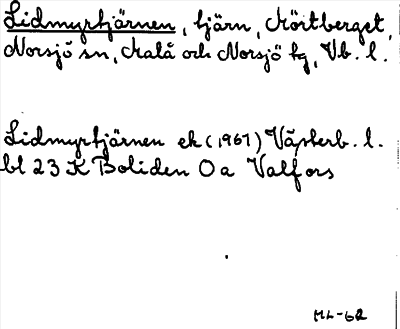 Lidmyrtjärnen, tjärn, Mörtberget,
Norsjö sn, Malå och Norsjö tg, Vb. l.
Lidmyrtjärnen ek (1967) Västerb. l.
bl 23 K Boliden 0 a Valfors